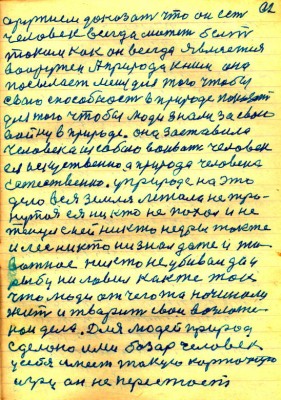 оружием доказат что он ест
человек всегда может быт
таким как он всегда является
вооружен А природа книги она
посылает меш для того чтобы
свою способност в природе показат
для того чтобы люди знали за свою
войну в природе. она заставила
человека и слабого воеват человек
ея искуственно а природа человека
естественно. у природе на это
дело вся земля лежала не тро-
нутоя ея ни кто не похал и не
ней ни кто недры так же
и лес ни кто ни знал даже и жи-
вотное ни кто не убивал да и
рыбу ни ловил как же так
что люди от чего та начинали
жит и тварит свои возможно-
наи дела. Для людей природ
сделано ими базар человек
у себя имеет такую картожную
игру он не перестает